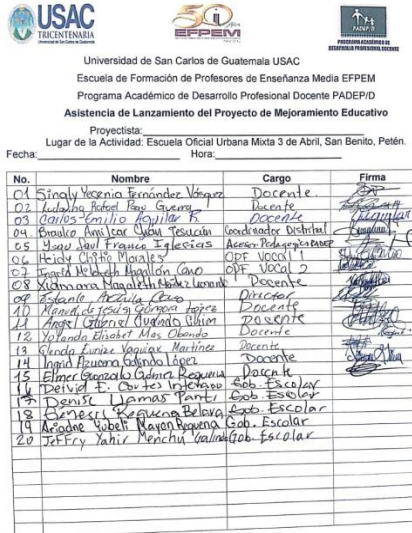 USAC
TRICENTENARIA
Universidad de San Carlos de Guatemala
50
EFPEM
PADEP/D
PROGRAMA ACADÉMICO DE
DESARROLLO PROFESIONAL DOCENTE
Universidad de San Carlos de Guatemala USAC
Escuela de Formación de Profesores de Enseñanza Media EFPEM
Programa Académico de Desarrollo Profesional Docente PADEP/D
Asistencia de Lanzamiento del Proyecto de Mejoramiento Educativo
Proyectista:
Lugar de la Actividad: Escuela Oficial Urbana Mixta 3 de Abril, San Benito, Petén.
Fecha: Hora:
No. Nombre Cargo Firma
01 Singly Yecenia Fernández Vásquez Docente
02 Rafael Guerra Docente
03 Carlos Emilio Aguilar R. Docente
04 Braulio Amilcar Tesucún Coordinador Distrital
05 Saul Franco Iglesias Asesor Pedagógico
06 Heidy Chitio Morales OPF Vocal 1
07 Ingrid Magallón Cano OPF Vocal 2
08 Xiomara Magaleth Docente
09 Director
10 Manuel de Jesús Góngora López Docente
11 Angel Gabriel Docente
12 Yolanda Elizabet Mas Obando Docente
13 Glenda Eunize Vaquiax Martínez Docente
14 Ingrid Azucena Galindo López Docente
15 Elmer Gonzalo Gómez Requena Docente
16 Deivid E. Cortes Gob. Escolar
17 Denise Llamas Panti Gob. Escolar
18 Genesis Requena Gob. Escolar
19 Ariadne Yubeli Mayen Requena Gob. Escolar
20 Jeffry Yahir Menchú Galindo Gob. Escolar